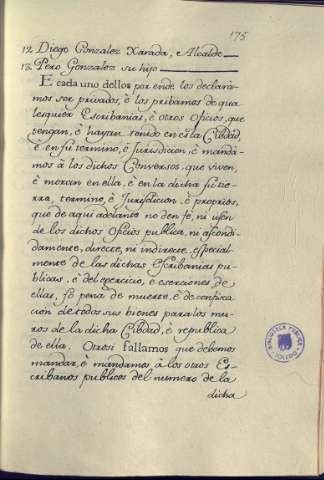 175
12. Diego Gonzalez Xarada, e Alcalde
13. Pero Gonzalez su hijo
E cada uno dellos por ende los declara-
mos ser privados, è los pribamos de qua-
lesquier Escribanias, è otros Oficios, que
tengan, è hayan tenido en esta Cibdad,
è en su termino, è Jurisdicion, è mandá-
mos à los dichos Conversos, que viven,
è moran en ella, è en la dicha su tie-
rra, termino, è Jurisdicion, è proprios,
que de aqui adelante no den fé, ni usen
de los dichos Oficios publica, ni ascondi-
damente, directe, ni indirecte, especial-
mente de las dichas Escribanias pu-
blicas, è del exercicio, è exerciones de
ellas, só pena de muerte, è de confisca-
cion de todos sus bienes para los mu-
ros de la dicha Cibdad, è republica
de ella. Otrosi fallamos que debemos
mandar, è mandamos à los otros Es-
cribanos publicos del numero de la
dicha
BIBLIOTECA PUBLICA
TOLEDO